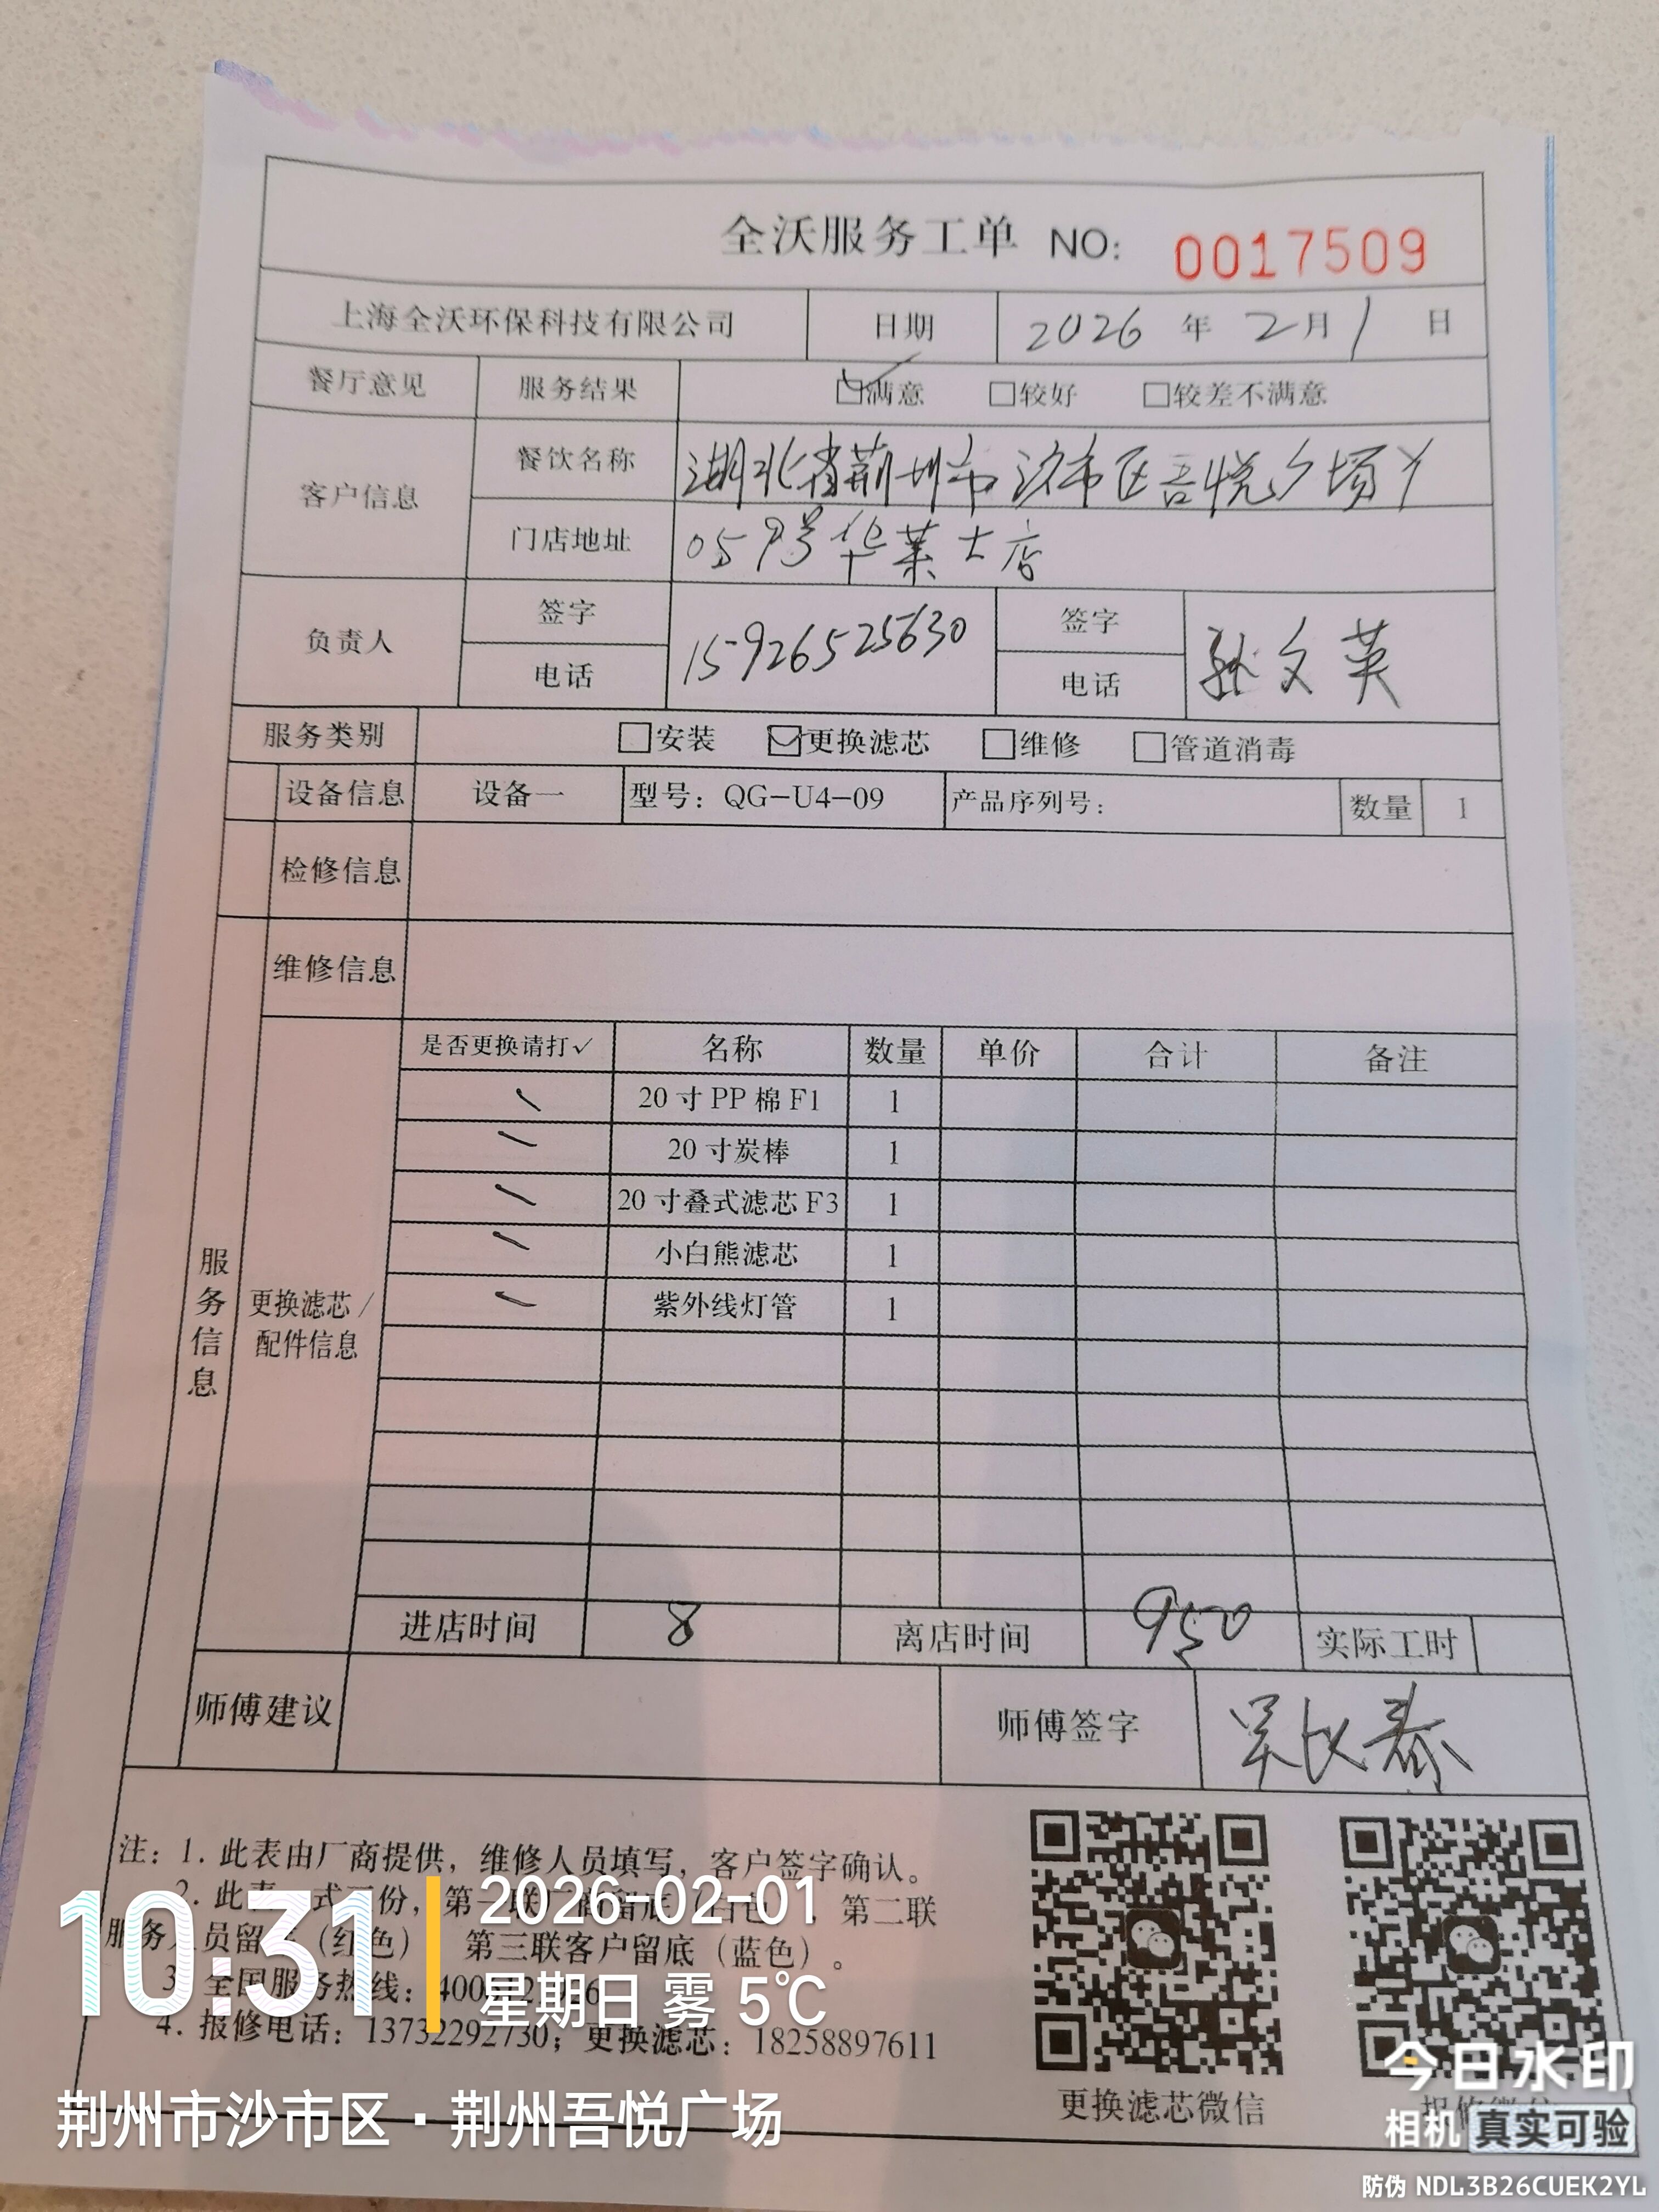 全沃服务工单 NO: 0017509
上海全沃环保科技有限公司 日期 2026 年 2 月 1 日
餐厅意见 服务结果 ☑满意 □较好 □较差不满意
客户信息 餐饮名称 湖北省荆州市沙市区吾悦广场Y
门店地址 059号华莱士店
负责人 签字 电话 15926525630 签字 电话 孙文英
服务类别 □安装 ☑更换滤芯 □维修 □管道消毒
设备信息 设备一 型号: QG-U4-09 产品序列号: 数量 1
检修信息
维修信息
服务信息
更换滤芯/配件信息
是否更换请打✓ 名称 数量 单价 合计 备注
✓ 20寸PP棉F1 1
✓ 20寸炭棒 1
✓ 20寸叠式滤芯F3 1
✓ 小白熊滤芯 1
✓ 紫外线灯管 1
进店时间 8 离店时间 950 实际工时
师傅建议 师傅签字 吴
注: 1. 此表由厂商提供, 维修人员填写, 客户签字确认。
2. 此表 式 份, 第一联厂商留底 白色 , 第二联
服务人员留 (红色) 第三联客户留底 (蓝色) 。
3. 全国服务热线:
4. 报修电话: 13732292730; 更换滤芯: 18258897611
更换滤芯微信
10:31
2026-02-01
星期日 雾 5℃
荆州市沙市区·荆州吾悦广场
今日水印
相机 真实可验
防伪 NDL3B26CUEK2YL